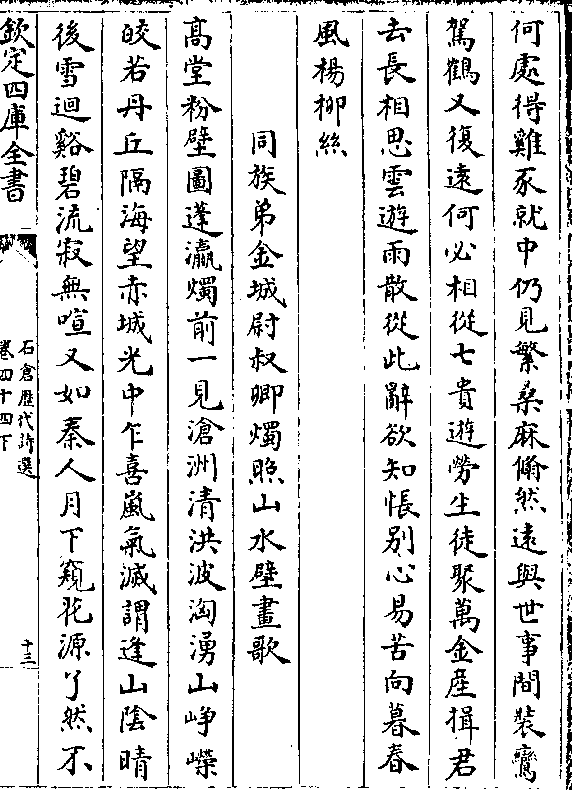 何處得雞豕就中仍見繁桑麻翛然遠與世事間裝鸞
駕鶴又復遠何必相從七貴遊勞生徒聚萬金産揖君
去長相思雲遊雨散從此辭欲知悵别心易苦向暮春
風楊柳絲
同族弟金城尉叔卿燭照山水壁畫歌
髙堂粉壁圖蓬瀛燭前一見滄洲清洪波洶湧山崢嶸
皎若丹丘隔海望赤城光中乍喜嵐氣滅謂逢山陰晴
後雪迴谿碧流寂無喧又如秦人月下窺花源了然不
欽定四庫全書
石倉歴代詩選
卷四十四下
十三